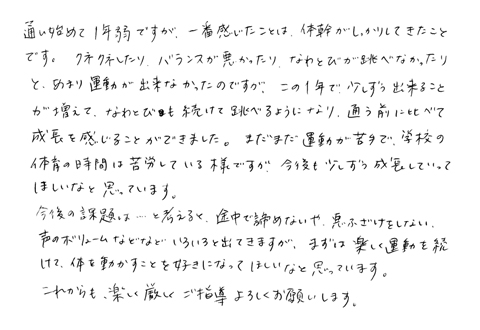 通い始めて1年弱ですが、一番感じたことは、体幹がしっかりしてきたこと
です。クネクネしたり、バランスが悪かったり、なわとびが跳べなかったり
と、あまり運動が出来なかったのですが、この1年で、少しずつ出来ること
が増えて、なわとびも続けて跳べるようになり、通う前に比べて
成長を感じることができました。まだまだ運動が苦手で、学校の
体育の時間は苦労している様ですが、今後も少しずつ成長していって
ほしいなと思っています。
今後の課題は…と考えると、途中で諦めないや、悪ふざけをしない、
声のボリュームなどなどいろいろと出てきますが、まずは楽しく運動を続
けて、体を動かすことを好きになってほしいなと思っています。
これからも、楽しく厳しくご指導よろしくお願いします。